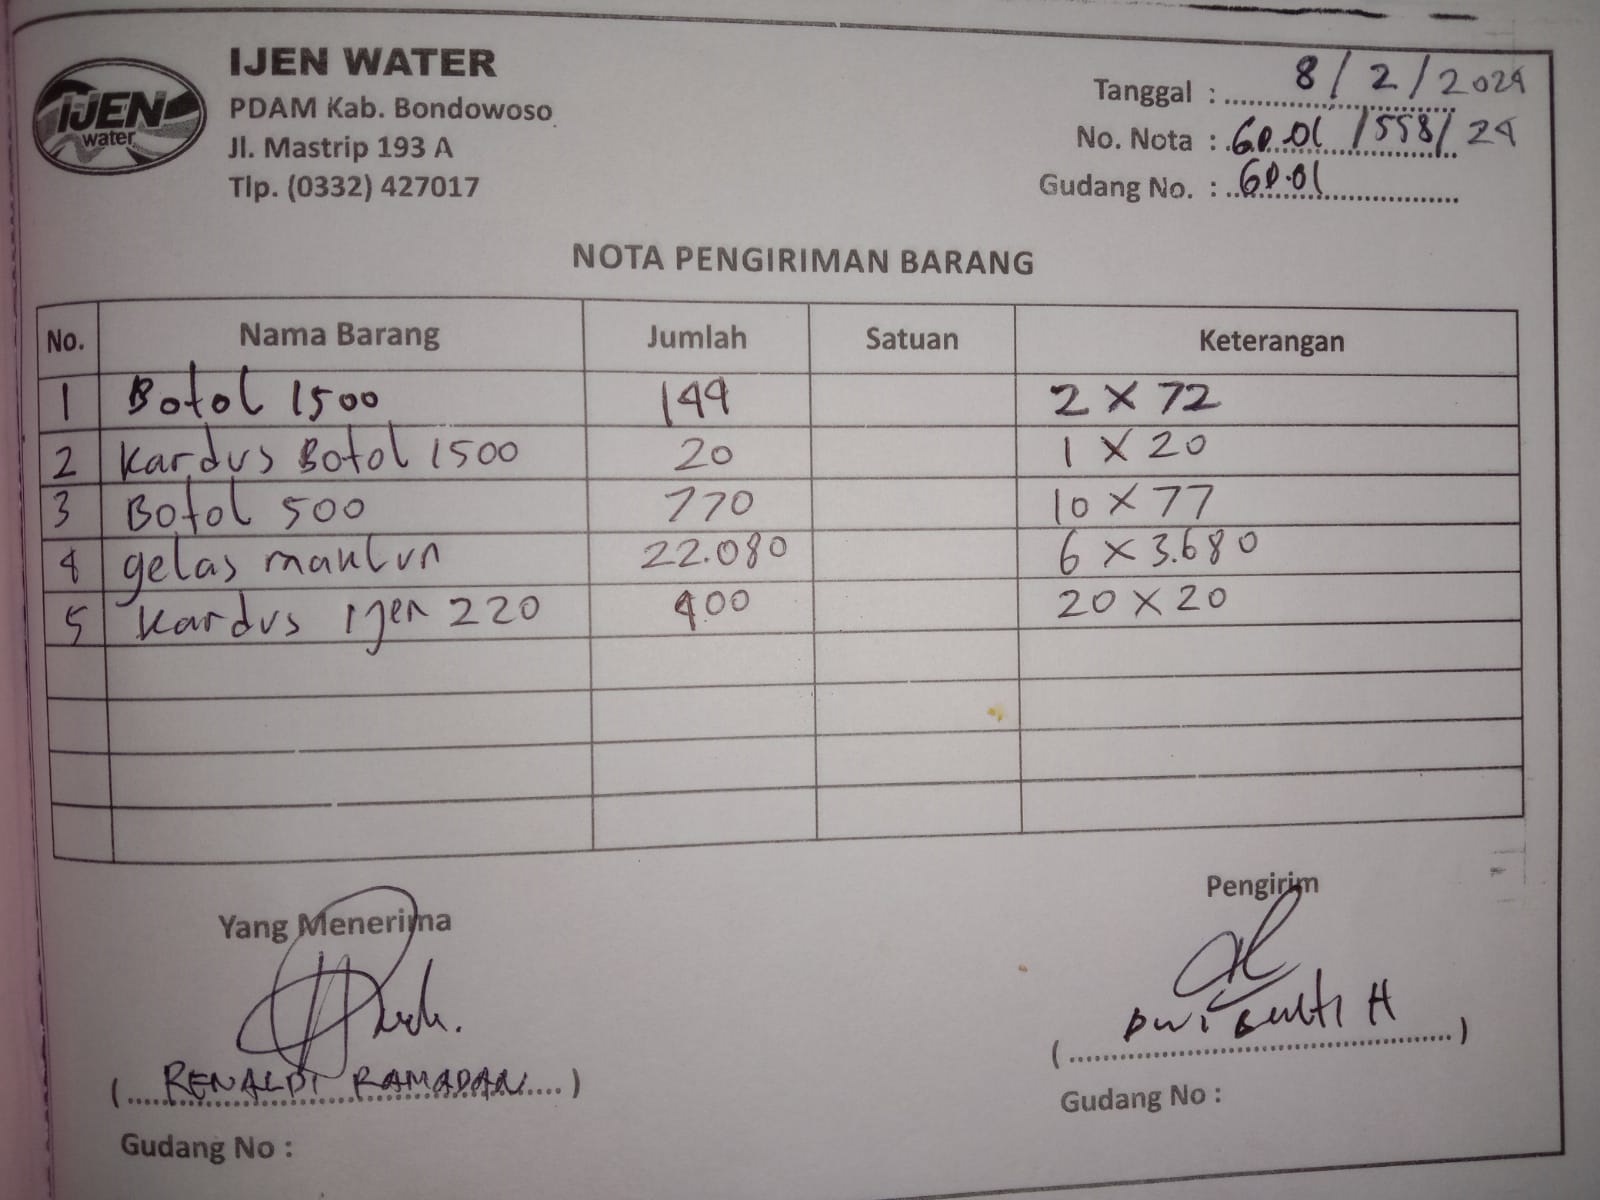 IJEN WATER
IJEN
water
PDAM Kab. Bondowoso
Jl. Mastrip 193 A
Tlp. (0332) 427017
Tanggal : 8/2/2024
No. Nota : GD.01/558/24
Gudang No. : GD.01
NOTA PENGIRIMAN BARANG
No. Nama Barang Jumlah Satuan Keterangan
1 Botol 1500 144 2 X 72
2 Kardus Botol 1500 20 1 X 20
3 Botol 500 770 10 X 77
4 gelas maklun 22.080 6 X 3.680
5 Kardus Ijen 220 400 20 X 20
Yang Menerima
Pengirim
(RENALDI RAMADAN)
(Dwi Bukti H)
Gudang No :
Gudang No :